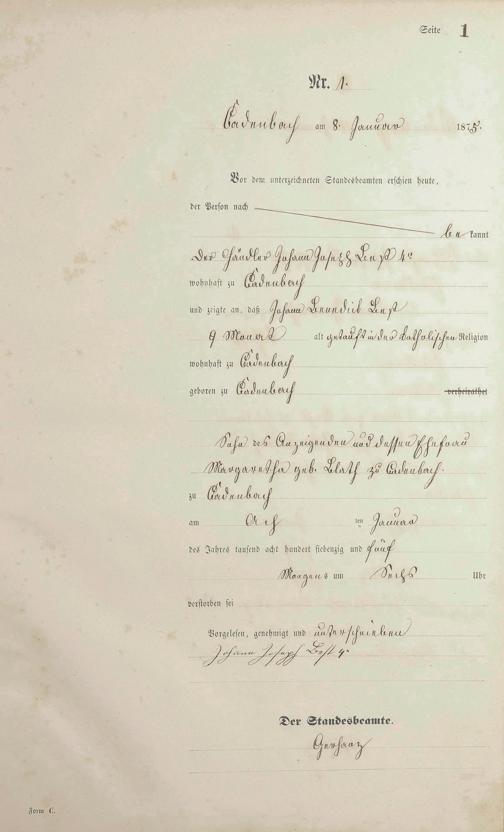 Seite 1
Nr. 1.
Cadenbach am 8. Januar 1875.
Vor dem unterzeichneten Standesbeamten erschien heute,
der Person nach
be kannt
der Händler Johann Joseph Best 4r
wohnhaft zu Cadenbach
und zeigte an, daß Johann Benedict Best
9 Monat alt getauft in der katholischen Religion
wohnhaft zu Cadenbach
geboren zu Cadenbach verheirathet
Sohn des Anzeigenden und dessen Ehefrau
Margaretha geb. zu Cadenbach.
zu Cadenbach
am Acht ten Januar
des Jahres tausend acht hundert siebenzig und fünf
Morgens um Sechs Uhr
verstorben sei
Vorgelesen, genehmigt und unterschrieben
Johann Joseph Best 4r
Der Standesbeamte.
Gerharz
Form C.